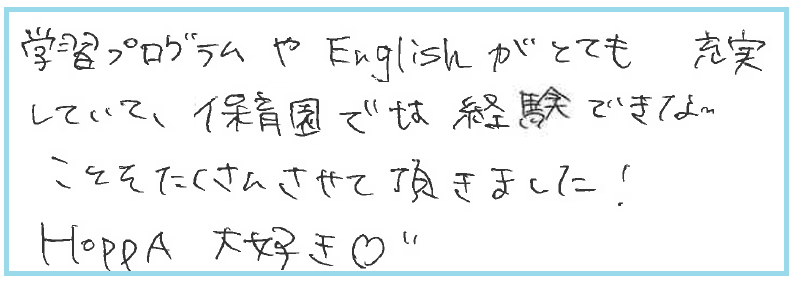 学習プログラムや English がとても 充実
していて、保育園では経験できない
ことをたくさんさせて頂きました!
HOPPA 大好き♡"